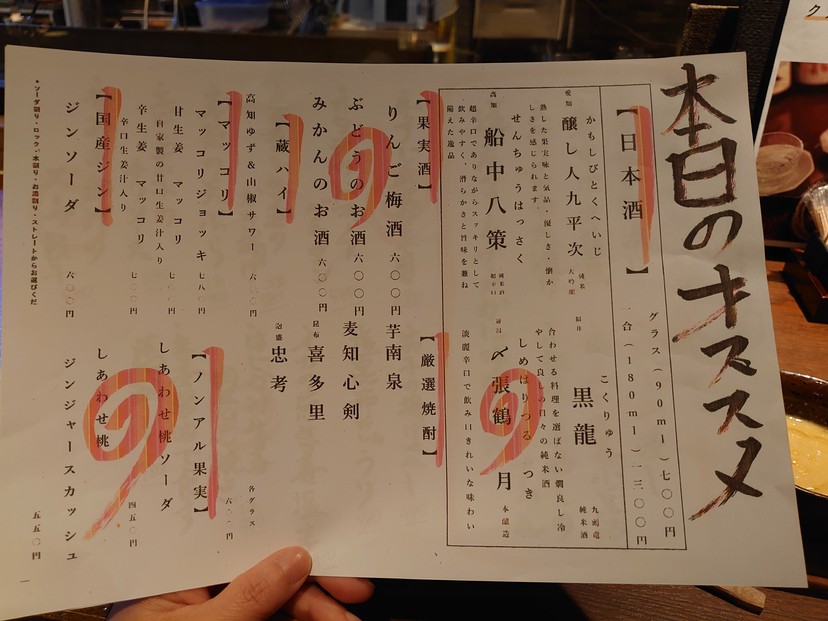 本日のオススメ
【日本酒】
グラス(90ml)七〇〇円
一合(180ml)一三〇〇円
かもしびとくへいじ
愛知 醸し人九平次 純米大吟醸
熟した果実味と気品・優しさ・懐かしさを感じられます。
こくりゅう
福井 黒龍 九頭竜 純米酒
合わせる料理を選ばない燗良し冷やして良しの日々の純米酒
せんちゅうはっさく
高知 船中八策 純米酒 超辛口
超辛口でありながらスッキリとして飲みやすく、滑らかさと旨味を兼ね備えた逸品
しめはりつる つき
新潟 〆張鶴 月 本醸造
淡麗辛口で飲み口きれいな味わい
【果実酒】
りんご梅酒 六〇〇円
ぶどうのお酒 六〇〇円
みかんのお酒 六〇〇円
【厳選焼酎】
芋 南泉
麦 知心剣
昆布 喜多里
泡盛 忠孝
各グラス 六〇〇円
【蔵ハイ】
高知ゆず&山椒サワー 六〇〇円
【マッコリ】
マッコリジョッキ 七八〇円
甘生姜 マッコリ 七〇〇円
自家製の甘口生姜汁入り
辛生姜 マッコリ 七〇〇円
辛口生姜汁入り
【ノンアル果実】
しあわせ桃ソーダ 四五〇円
しあわせ桃
ジンジャースカッシュ 五五〇円
【国産ジン】
ジンソーダ 六〇〇円
*ソーダ割り・ロック・水割り・お湯割り・ストレートからお選びくだ